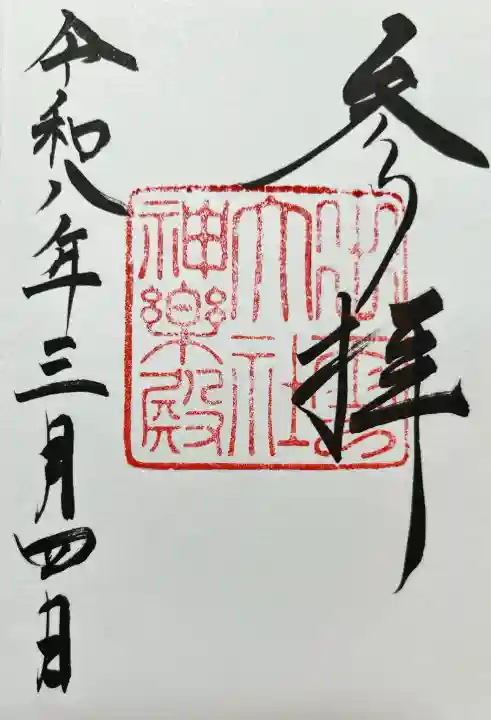 参拝
出雲
大社
神楽殿
令和八年三月四日